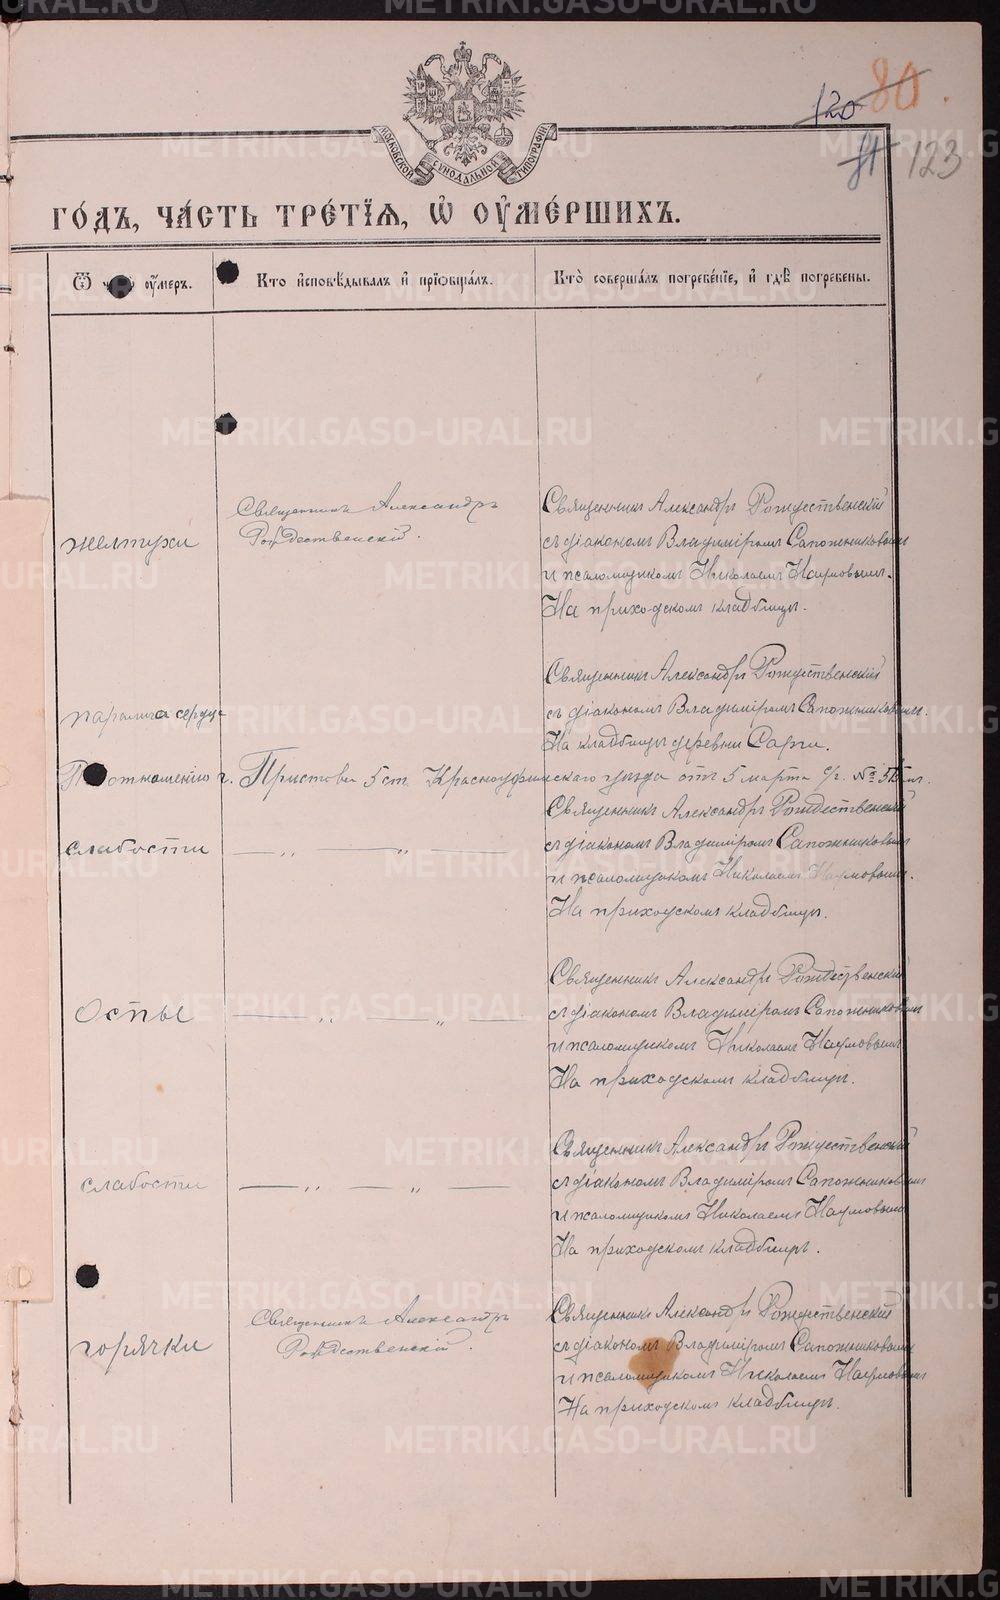 120 80.
81 123
МОСКОВСКОЙ СѴНОДАЛЬНОЙ ТИПОГРАФІИ
ГО́ДЪ, ЧА́СТЬ ТРЕ́ТІѦ, Ѡ҆ ОУ҆МЕ́РШИХЪ.
Ѿ оу҆́меръ. Кто̀ и҆сповѣ́дывалъ и҆ прїѡбща́лъ. Кто̀ соверша́лъ погребе́нїе, и҆ гдѣ̀ погребены̀.
Священникъ Александръ Священникъ Александръ Рождественскій
желтухи Рождественскій. съ діакономъ Владиміромъ Сапожниковымъ
и псаломщикомъ Николаемъ Наумовымъ.
На приходскомъ кладбищѣ.
Священникъ Александръ Рождественскій
паралича сердца съ діакономъ Владиміромъ Сапожниковымъ.
На кладбищѣ деревни Сарги.
По отношенію г. Пристова 5 ст. Красноуфимскаго уѣзда отъ 5 марта с/г. №
Священникъ Александръ Рождественскій
слабости — „ — „ — съ діакономъ Владиміромъ Сапожниковымъ
и псаломщикомъ Николаемъ Наумовымъ.
На приходскомъ кладбищѣ.
Священникъ Александръ Рождественскій
Оспы — „ — „ — съ діакономъ Владиміромъ Сапожниковымъ
и псаломщикомъ Николаемъ Наумовымъ
На приходскомъ кладбищѣ.
Священникъ Александръ Рождественскій
слабости — „ — „ — съ діакономъ Владиміромъ Сапожниковымъ
и псаломщикомъ Николаемъ Наумовымъ
На приходскомъ кладбищѣ.
Священникъ Александръ Священникъ Александръ Рождественскій
горячки Рождественскій. съ діакономъ Владиміромъ Сапожниковымъ
и псаломщикомъ Николаемъ Наумовымъ
На приходскомъ кладбищѣ.
METRIKI.GASO-URAL.RU